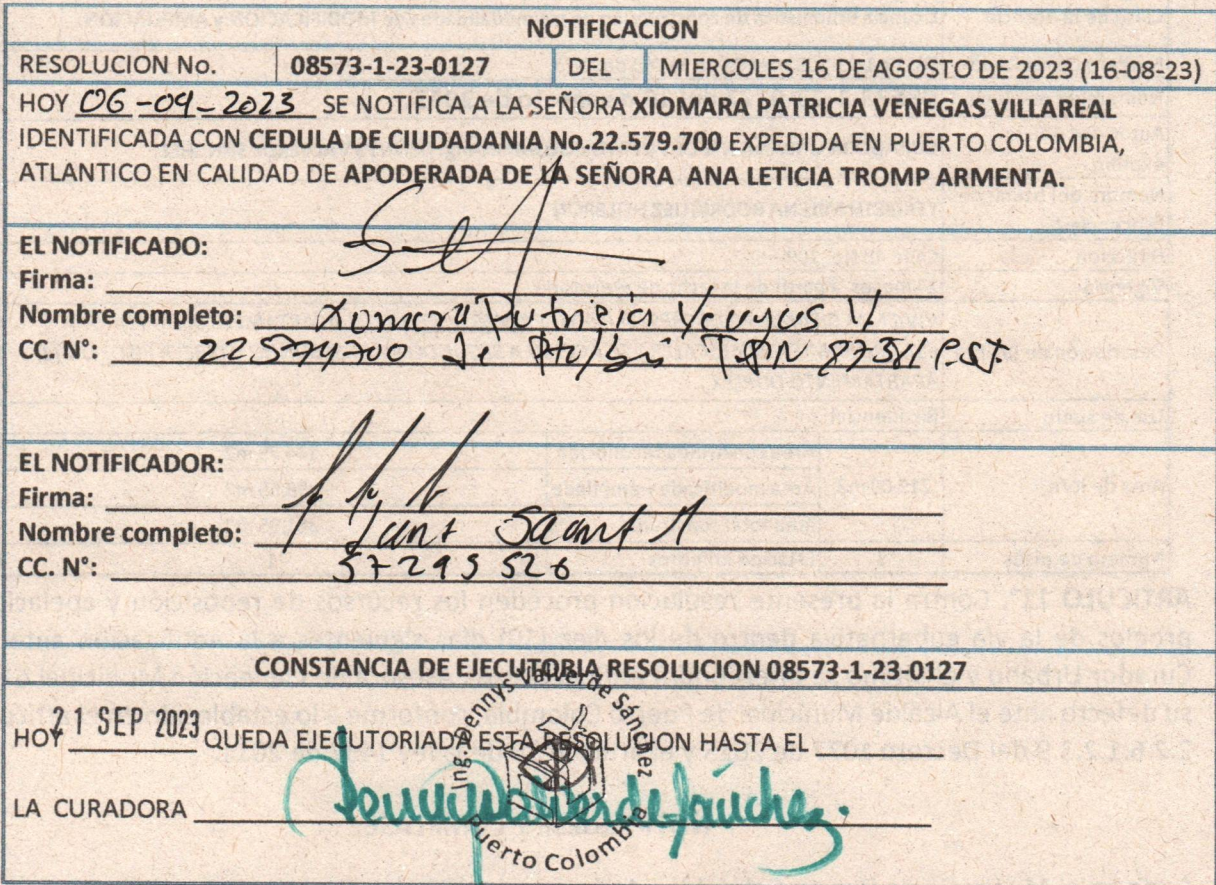 NOTIFICACION
RESOLUCION No. 08573-1-23-0127 DEL MIERCOLES 16 DE AGOSTO DE 2023 (16-08-23)
HOY 06-09-2023 SE NOTIFICA A LA SEÑORA XIOMARA PATRICIA VENEGAS VILLAREAL
IDENTIFICADA CON CEDULA DE CIUDADANIA No.22.579.700 EXPEDIDA EN PUERTO COLOMBIA,
ATLANTICO EN CALIDAD DE APODERADA DE LA SEÑORA ANA LETICIA TROMP ARMENTA.
EL NOTIFICADO:
Firma:
Nombre completo: Xiomara Patricia Venegas V
CC. N°: 22579700 de Pto
EL NOTIFICADOR:
Firma:
Nombre completo:
CC. N°: 57295526
CONSTANCIA DE EJECUTORIA RESOLUCION 08573-1-23-0127
HOY 21 SEP 2023 QUEDA EJECUTORIADA ESTA RESOLUCION HASTA EL
LA CURADORA
Ing. Dennys Valverde Sánchez
Puerto Colombia